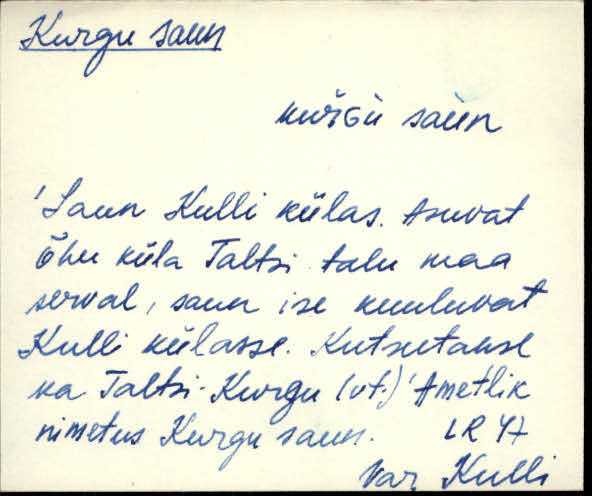 Kurgu saun
kŭrGŭ saŭn
'Saun Kulli külas. Asuvat
Õhu küla Taltsi talu maa
serval, saun ise kuuluvat
Kulli külasse. Kutsutakse
ka Taltsi-Kurgu (vt.)' Ametlik
nimetus Kurgu saun. LR 47
Var, Kulli